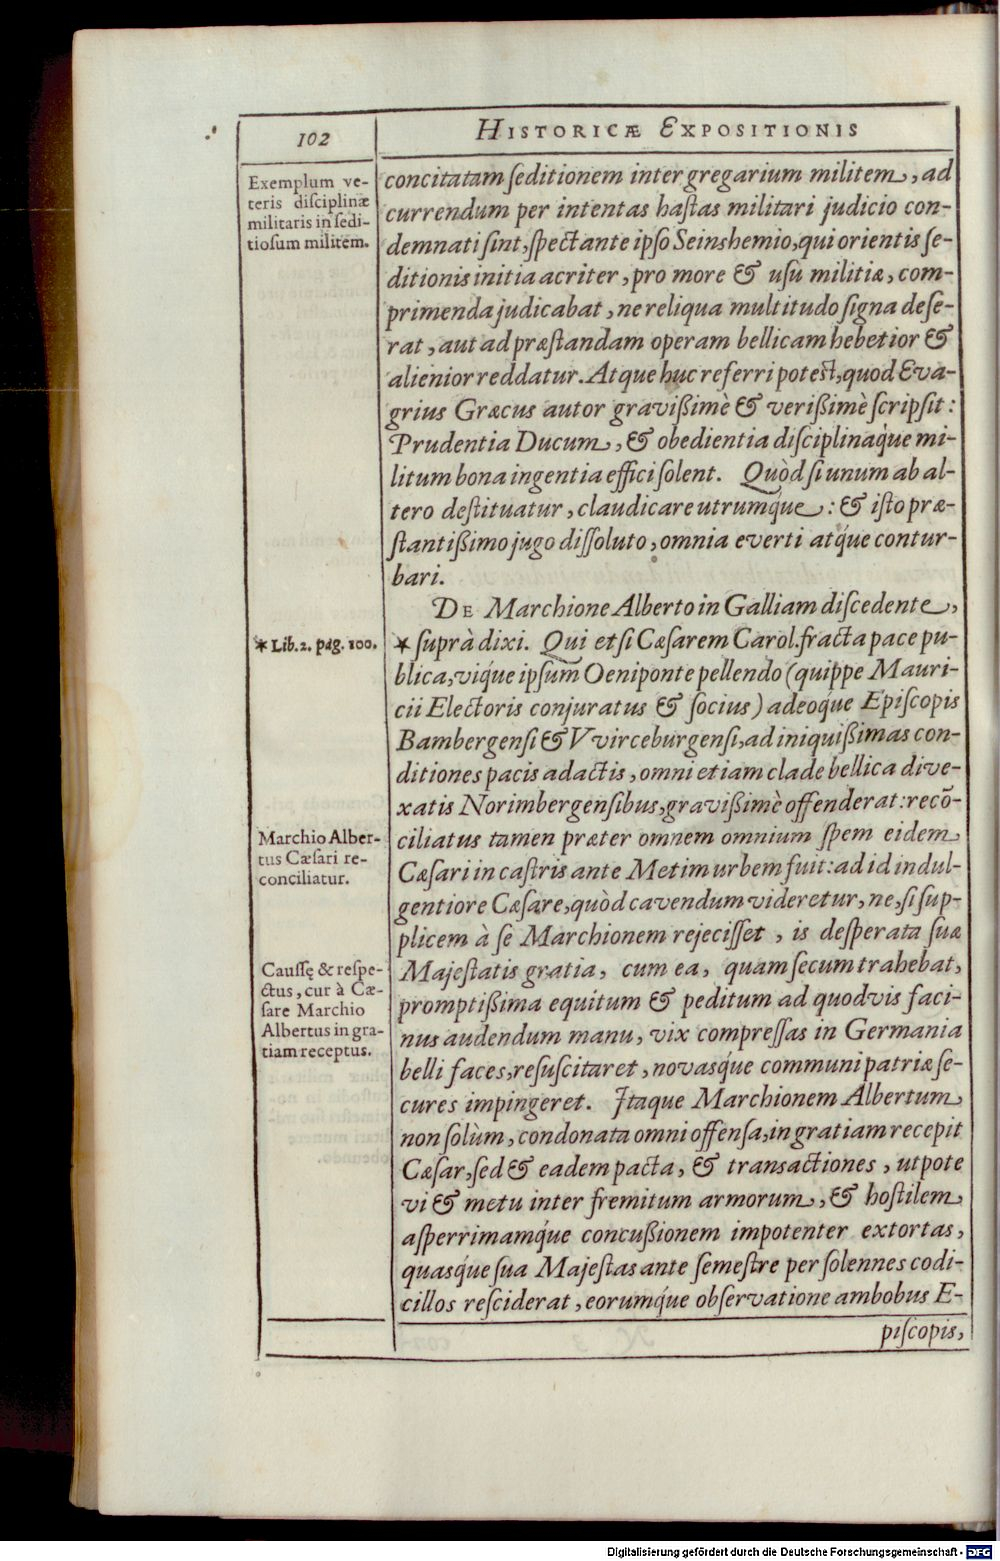 102
HISTORICÆ EXPOSITIONIS
Exemplum ve-
teris diſciplinæ
militaris in ſedi-
tioſum militem.
concitatam ſeditionem inter gregarium militem, ad
currendum per intentas haſtas militari judicio con-
demnati ſint, ſpectante ipſo Seinshemio, qui orientis ſe-
ditionis initia acriter, pro more & uſu militiæ, com-
primenda judicabat, ne reliqua multitudo ſigna deſe-
rat, aut ad præſtandam operam bellicam hebetior &
alienior reddatur. Atque huc referri poteſt, quod Eva-
grius Græcus autor gravißimè & verißimè ſcripſit:
Prudentia Ducum, & obedientia diſciplinaq́ue mi-
litum bona ingentia effici ſolent. Quòd ſi unum ab al-
tero deſtituatur, claudicare utrumq́ue: & iſto præ-
ſtantißimo jugo diſſoluto, omnia everti atq́ue contur-
bari.
DE Marchione Alberto in Galliam diſcedente,
* Lib. 2. pag. 100.
* ſuprà dixi. Qui etſi Cæſarem Carol. fracta pace pu-
blica, viq́ue ipſum Oeniponte pellendo (quippe Mauri-
cii Electoris conjuratus & ſocius) adeoq́ue Epiſcopis
Bambergenſi & VVirceburgenſi, ad iniquißimas con-
ditiones pacis adactis, omni etiam clade bellica dive-
xatis Norimbergenſibus, gravißimè offenderat: recō-
Marchio Alber-
tus Cæſari re-
conciliatur.
ciliatus tamen præter omnem omnium ſpem eidem
Cæſari in caſtris ante Metim urbem fuit: ad id indul-
gentiore Cæſare, quòd cavendum videretur, ne, ſi ſup-
plicem à ſe Marchionem rejeciſſet, is deſperata ſuæ
Cauſſę & reſpe-
ctus, cur à Cæ-
ſare Marchio
Albertus in gra-
tiam receptus.
Majeſtatis gratia, cum ea, quam ſecum trahebat,
promptißima equitum & peditum ad quodvis faci-
nus audendum manu, vix compreſſas in Germania
belli faces, reſuſcitaret, novasq́ue communi patriæ ſe-
cures impingeret. Itaque Marchionem Albertum
non ſolùm, condonata omni offenſa, in gratiam recepit
Cæſar, ſed & eadem pacta, & transactiones, utpote
vi & metu inter fremitum armorum, & hoſtilem
aſperrimamq́ue concußionem impotenter extortas,
quasq́ue ſua Majeſtas ante ſemeſtre per ſolennes codi-
cillos reſciderat, eorumq́ue obſervatione ambobus E-
piſcopis,
Digitalisierung gefördert durch die Deutsche Forschungsgemeinschaft - DFG